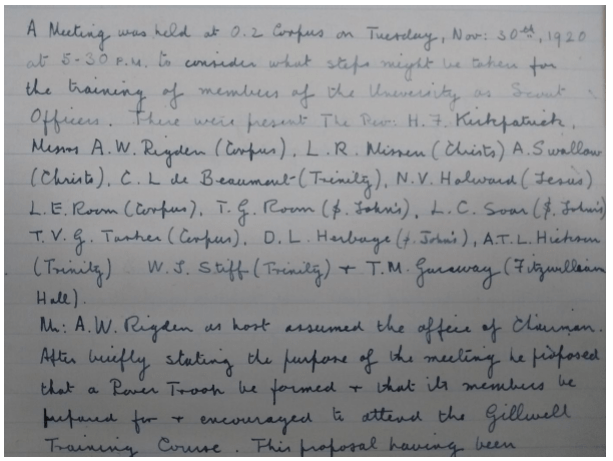 A Meeting was held at O.2 Corpus on Tuesday, Nov: 30th, 1920
at 5-30 P.M. to consider what steps might be taken for
the training of members of the University as Scout
Officers. There were present The Rev: H. F. Kirkpatrick,
Messrs A.W. Rigden (Corpus), L.R. Missen (Christs) A. Swallow
(Christs), C.L de Beaumont (Trinity), N.V. Halward (Jesus)
L.E. Room (Corpus), T.G. Room (S. John's), L.C. Soar (S. John's)
T.V.G. Tasker (Corpus), D.L. Herbage (S. John's), A.T.L. Hickson
(Trinity) W.S. Stiff (Trinity) + T.M. Garaway (Fitzwilliam
Hall).
Mr: A.W. Rigden as host assumed the office of Chairman.
After briefly stating the purpose of the meeting he proposed
that a Rover Troop be formed + that its members be
prepared for + encouraged to attend the Gillwell
Training Course. This proposal having been